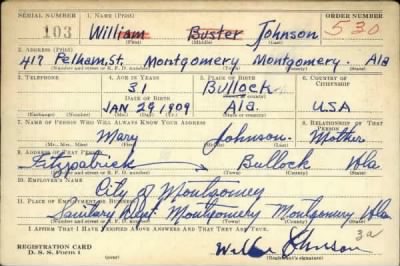 SERIAL NUMBER 1. NAME (Print) ORDER NUMBER
103 William Buster Johnson 530
(First) (Middle) (Last)
2. ADDRESS (Print)
417 Pelham St. Montgomery Montgomery. Ala
(Number and street or R. F. D. number) (Town) (County) (State)
3. TELEPHONE 4. AGE IN YEARS 5. PLACE OF BIRTH 6. COUNTRY OF CITIZENSHIP
31 Bullock
DATE OF BIRTH (Town or county)
JAN 29 1909 Ala. USA
(Exchange) (Number) (Mo.) (Day) (Yr.) (State or country)
7. NAME OF PERSON WHO WILL ALWAYS KNOW YOUR ADDRESS 8. RELATIONSHIP OF THAT PERSON
Mary Johnson Mother
(Mr., Mrs., Miss) (First) (Middle) (Last)
9. ADDRESS OF THAT PERSON
Fitzpatrick Bullock Ala
(Number and street or R. F. D. number) (Town) (County) (State)
10. EMPLOYER'S NAME
City of Montgomery
11. PLACE OF EMPLOYMENT OR BUSINESS
Sanitary Dept. Montgomery Montgomery Ala
(Number and street or R. F. D. number) (Town) (County) (State)
I AFFIRM THAT I HAVE VERIFIED ABOVE ANSWERS AND THAT THEY ARE TRUE.
REGISTRATION CARD
D. S. S. Form 1
Johnson
(Registrant's signature)